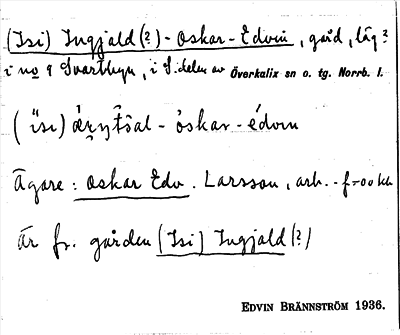 (Isi) Ingjald(?) - Oskar - Edvin, gård, låg?
i no 9 Svartbyn, i S. delen av Överkalix sn o. tg. Norrb. l.
(ísı) - òskar - édvın
Ägare: Oskar Edv. Larsson, arb. -
Är fr. gården (Isi) Ingjald(?)
EDVIN BRÄNNSTRÖM 1936.